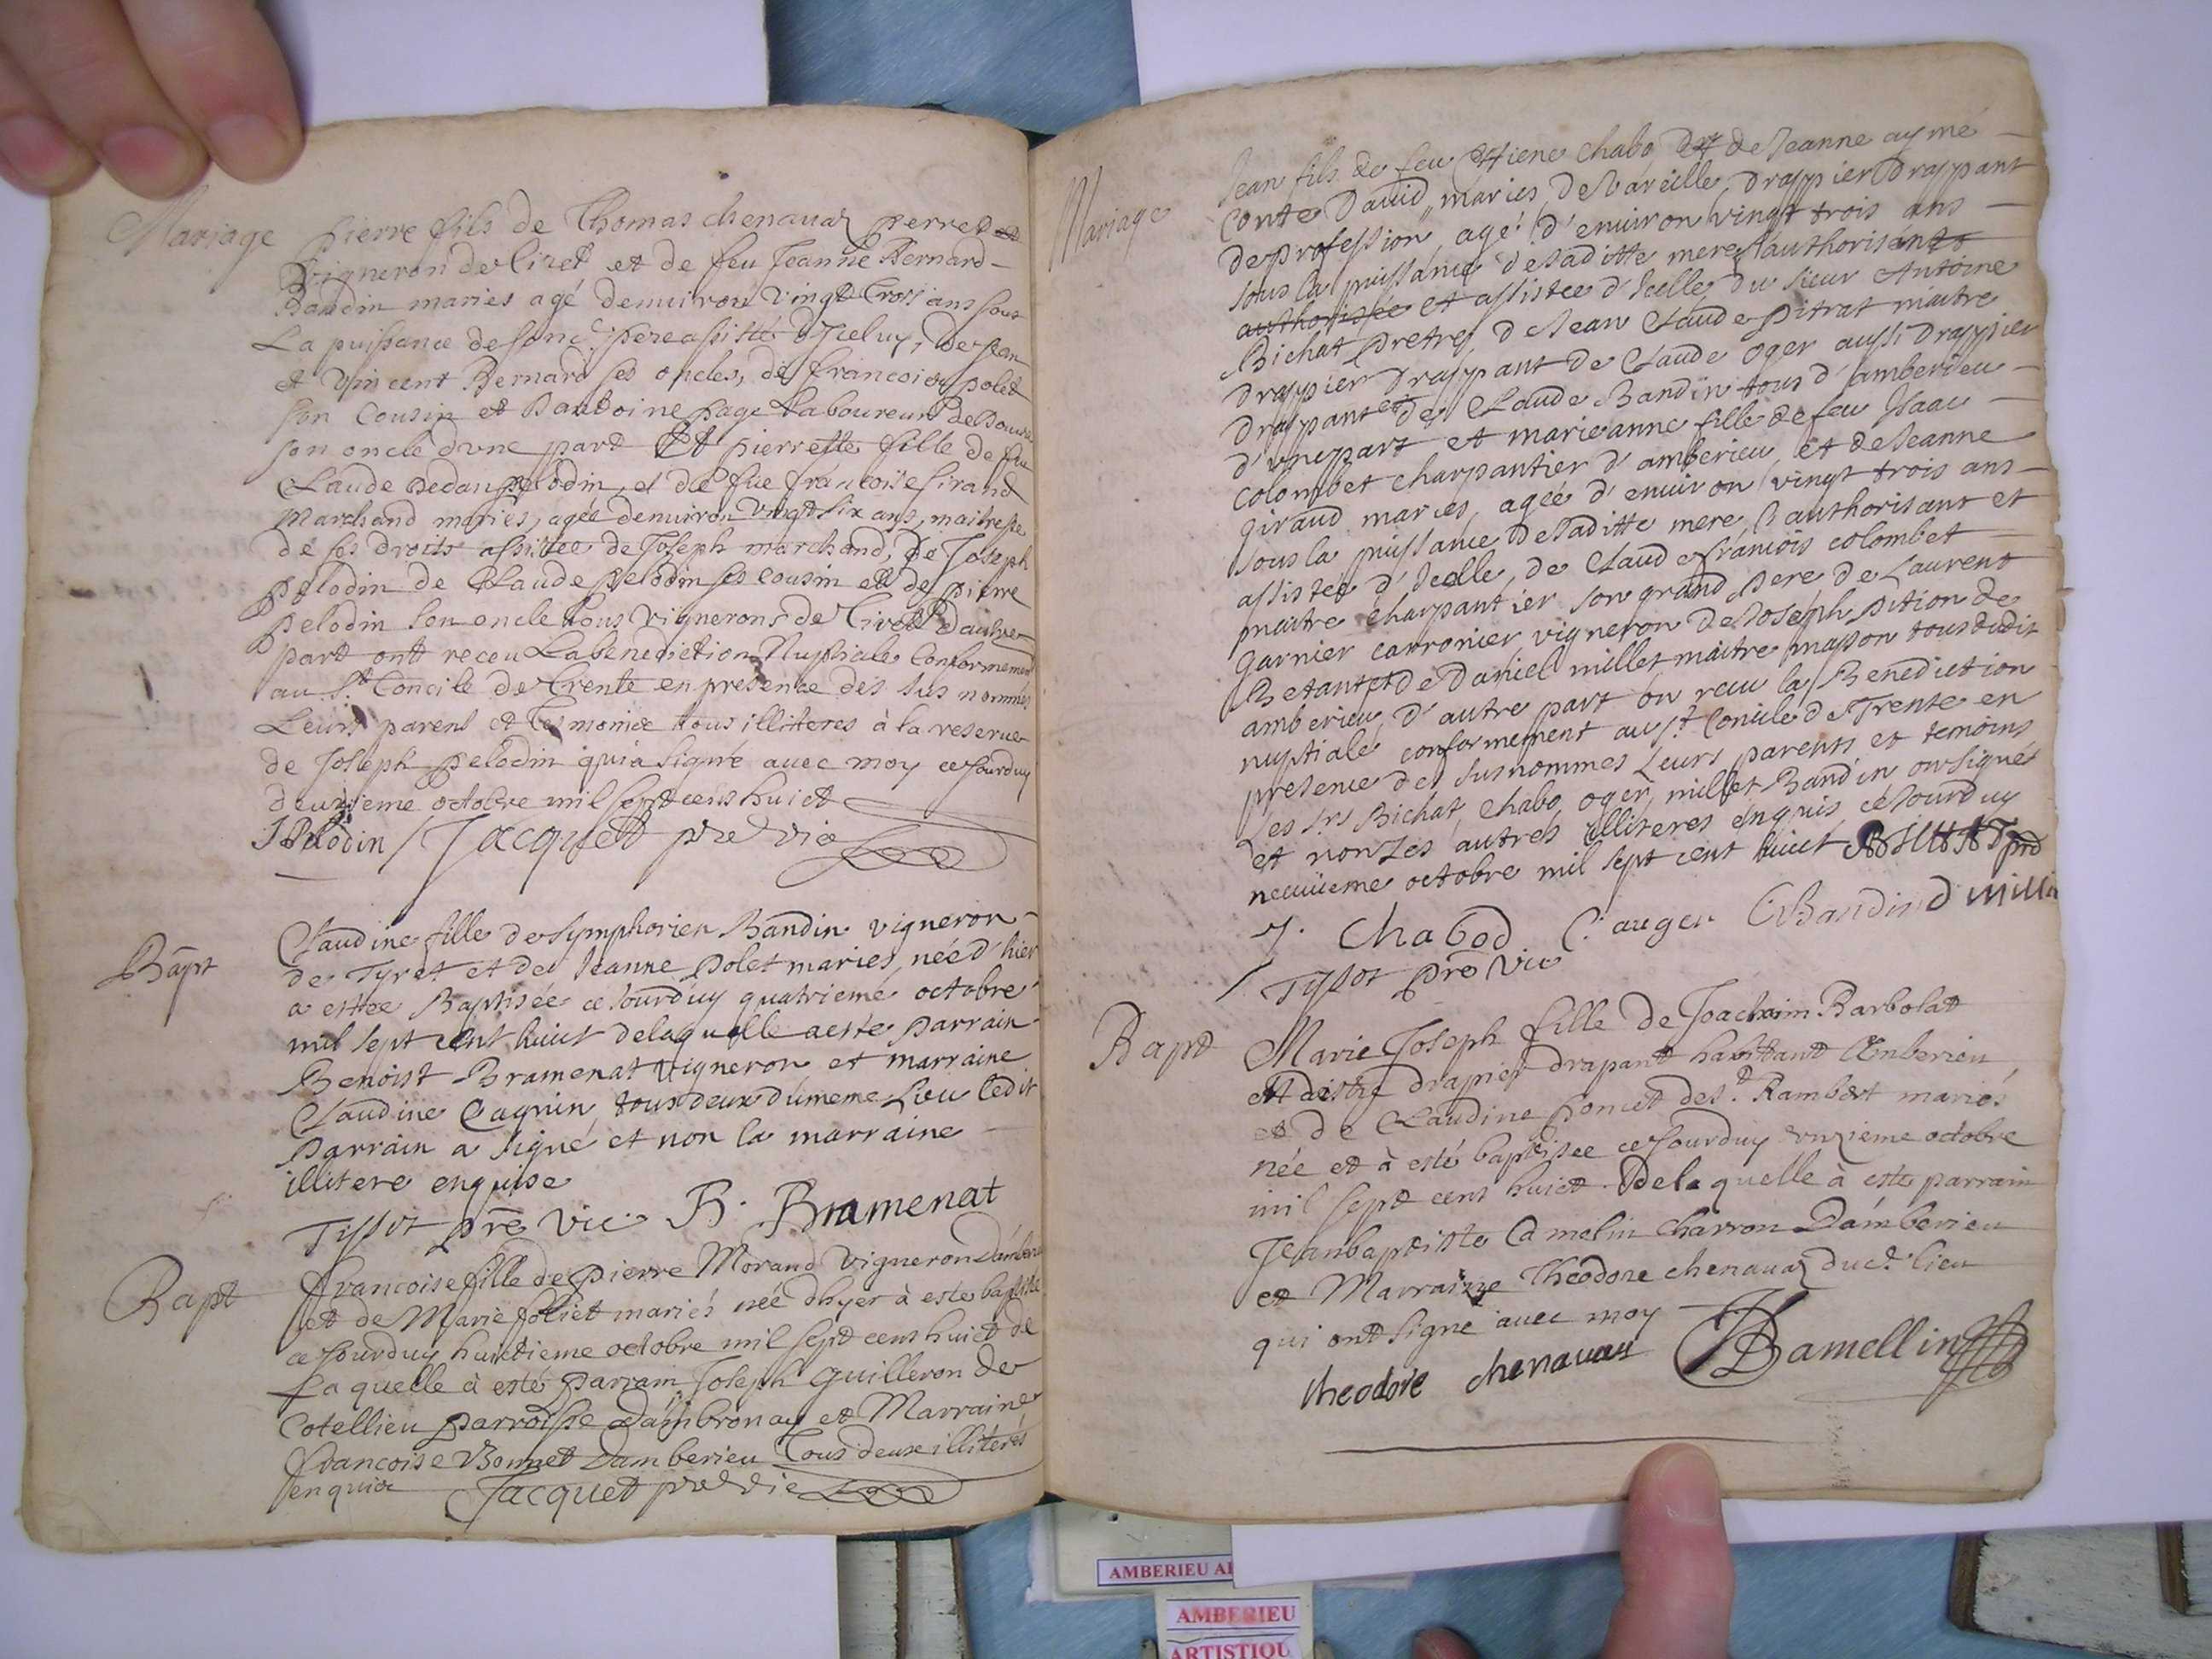 Mariage
pierre fils de Thomas chenauaz perret
vigneron de tiret et de feu Jeanne Bernard
Baudin maries agé denuiron vingt trois ans sous
La puissance de sond. pere assisté d'Iceluy, de Jean
et vincent Bernard ses oncles, de francois polet
son cousin et dantoine page Laboureur de Douure
son oncle dune part Et pierrette fille de feu
Claude Dedan pelodin, et de fue francoise sirand
Marchand mariés, agée denuiron vingt six ans, maitresse
de ses droits assistee de Joseph marchand, de Joseph
pelodin de Claude pelodin ses cousin et de pierre
pelodin son oncle tous vignerons de Tiret Daultre
part ont receu La benediction Nuptiale Conformement
au St. Concile de Trente en presence des sus nommés
Leurs parens et tesmoins tous illiteres à la reserue
de Joseph pelodin qui a signé auec moy ce Jourduy
deuxieme octobre mil sept cens huict
J Pelodin / Jacquet pre vic
Bapt
Claudine fille de symphorien Baudin vigneron
de Tyret et de Jeanne polet maries, née d'hier
a estee Baptisée ce Jourd'uy quatrieme octobre
mil sept cent huict de laquelle a esté parrain
Benoist Bramenat vigneron et marraine
Claudine Cagnin tous deux du meme Lieu Ledit
parrain a signé et non la marraine
illitere enquise
Tissot pre vic B. Bramenat
Bapt
francoise fille de pierre Morand vigneron damberieu
et de Marie folliet mariés née dhyer à esté baptisée
ce Jourduy huictieme octobre mil sept cens huict de
La quelle à esté parrain Joseph guilleron de
Cotellieu parroisse dambronay et Marraine
francoise Bonnet damberieu Tous deux illiterés
enquis Jacquet pre vic
Mariage
Jean fils de feu Etiene chabo et de Jeanne aymé
Conte Dauid maries, de Vareille, drappier drappant
de profession, agé d'enuiron vingt trois ans
sous la puissance de saditte mere l'authorisante
authorisée et assistee d'Icelle du sieur Antoine
Bichat pretre, de Jean Claude pitrat maitre
drappier drappant de Claude Oger aussi drappier
drappant et de Claude Baudin tous d'amberieu
d'une part et marieanne fille de feu Isaac
colombet charpantier d'amberieu et de Jeanne
giraud maries, agée d'enuiron vingt trois ans
sous la puissance de saditte mere, l'authorisant et
assistée d'Icelle, de Claude francois colombet
maitre charpantier son grand pere de Laurent
garnier carronier, vigneron de Joseph pition de
Betant et de Daniel millet maitre masson tous dudit
amberieu d'autre part on receu la Benediction
nuptiale conformement au St. Concile de Trente en
presence des susnommes Leurs parents et temoins
Les Srs Bichat, Chabo, oger, millet Baudin on signés
et non les autres illiteres enquis ce Jourduy
neuuieme octobre mil sept cent huict BICHAT prê
J. Chabod C. auger C Baudin d millet
Tissot prê Vic
Bapt
Marie Joseph fille de Joachim Barbolat
Maistre drapier drapant habitant Amberieu
et de Claudine poncet de St. Rambert mariés
née et à esté baptisee ce Jourduy unzieme octobre
mil sept cens huict De la quelle à esté parrain
Jeanbaptiste Camelin charron Damberieu
et Marraine Theodore chenauaz dud. lieu
qui ont signé auec moy
theodore chenauaz JB Camellin
AMBERIEU
AMBERIEU
ARTISTIQU